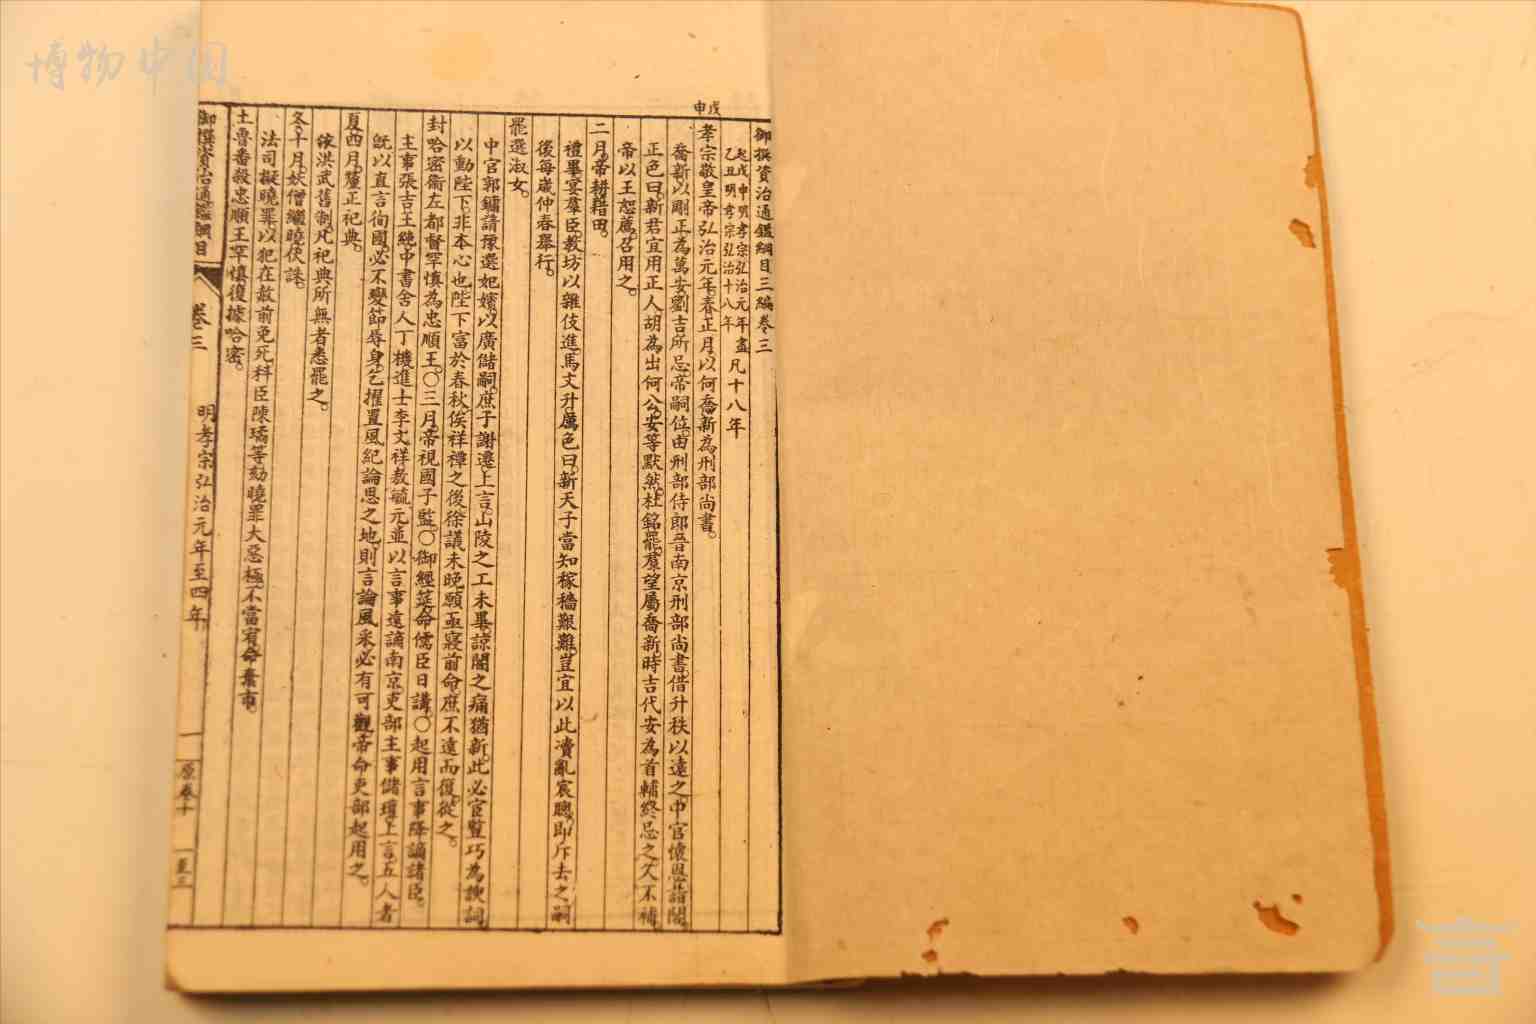 博物中国
戊申
御撰資治通鑑綱目三編卷三
起戊申明孝宗弘治元年盡
乙丑明孝宗弘治十八年
凡十八年
孝宗敬皇帝弘治元年。春正月。以何喬新為刑部尚書。
喬新以剛正為萬安劉吉所忌。帝嗣位。由刑部侍郎晉南京刑部尚書。借升秩以遠之。中官懷恩詣閣
正色曰。新君宜用正人。胡為出何公。安等默然。杜銘罷。羣望屬喬新。時吉代安為首輔。終忌之。久不補。
帝以王恕薦。召用之。
二月。帝耕籍田。
禮畢。宴羣臣。教坊以雜伎進。馬文升厲色曰。新天子當知稼穡艱難。豈宜以此瀆亂宸聰。即斥去之。嗣
後每歲仲春舉行。
罷選淑女。
中官郭鏞請豫選妃嬪。以廣儲嗣。庶子謝遷上言。山陵之工未畢。諒闇之痛猶新。此必宦豎巧為諛詞
以動陛下。非本心也。陛下富於春秋。俟祥禫之後。徐議未晚。願亟寢前命。庶不遠而復。從之。
封哈密衞左都督罕慎為忠順王。〇三月。帝視國子監。〇御經筵。命儒臣日講。〇起用言事降謫諸臣。
主事張吉王純。中書舍人丁璣。進士李文祥敖毓元。並以言事遠謫。南京吏部主事儲瓘上言。五人者
旣以直言徇國。必不變節辱身。乞擢置風紀論思之地。則言論風采。必有可觀。帝命吏部起用之。
夏四月。釐正祀典。
依洪武舊制。凡祀典所無者悉罷之。
冬十月。妖僧繼曉伏誅。
法司擬曉罪。以犯在赦前免死。科臣陳璚等劾曉罪大惡極。不當宥。命棄市。
土魯番殺忠順王罕慎。復據哈密。
御撰資治通鑑綱目 卷三 明孝宗弘治元年至四年 一 原卷十 至三